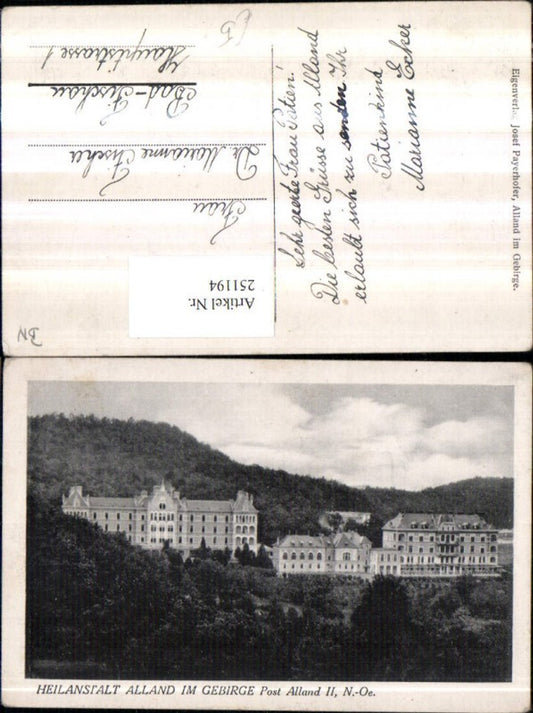 Sehr geerte Frau Patien!
Die besten Grüsse aus Alland
erlaubt sich zu senden Ihr
Patienkind
Marianne Ecker
Frau
Dr. Marianne
Bad-Fischau
Hauptstrasse 1
Eigenverlag Josef Payerhofer, Alland im Gebirge.
Artikel Nr.
251194
BN
HEILANSTALT ALLAND IM GEBIRGE Post Alland II, N.-Oe.